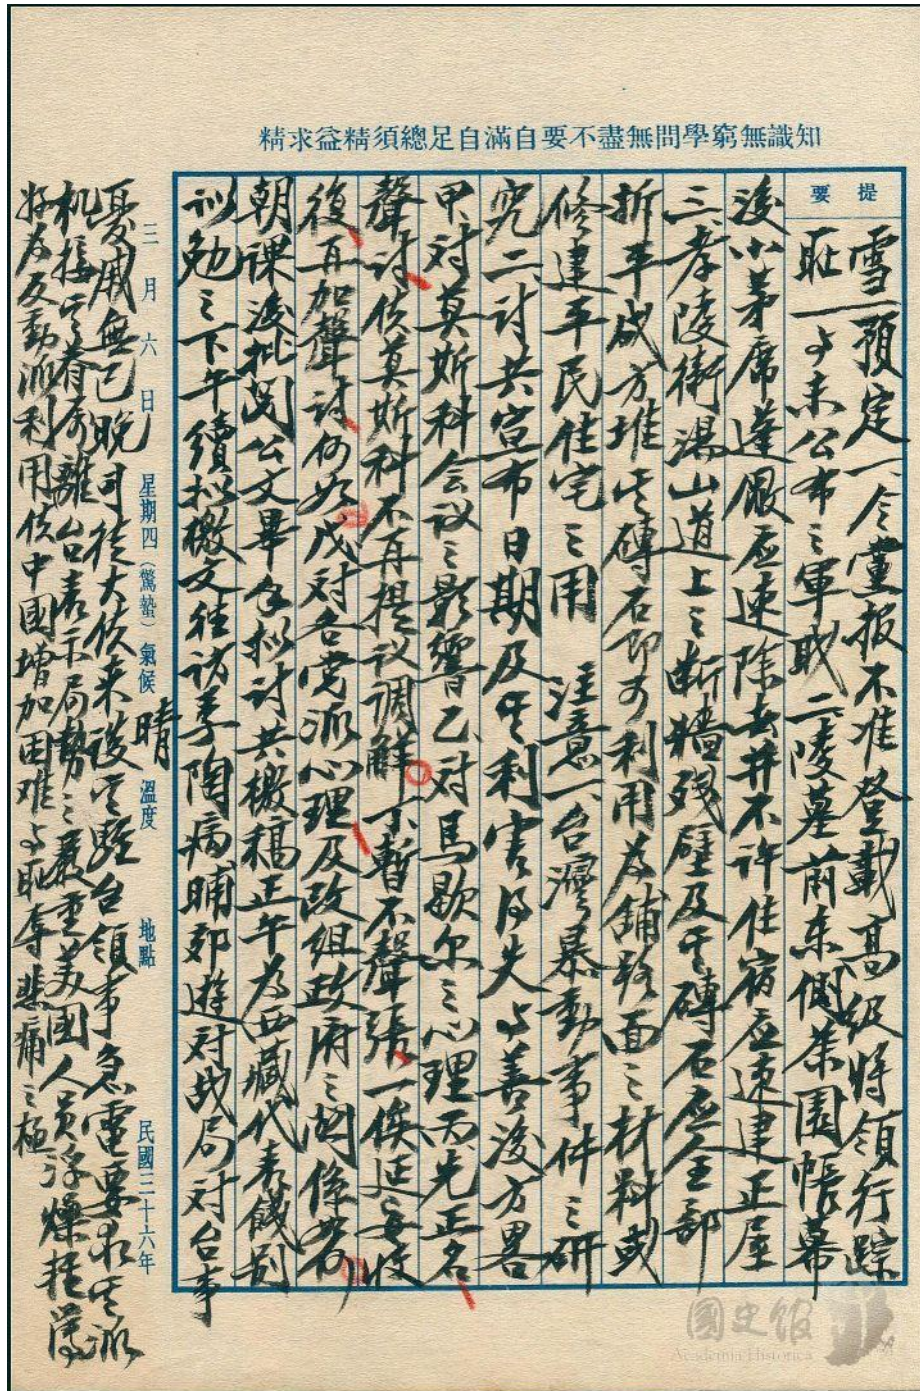 知識無窮學問無盡不要自滿自足總須精益求精
提要
雪一預定一、令黨报不准登載高级將領行踪
耻一与未公布之軍职二、陵墓前东側茶園帳幕
後小茅席蓬厰应速除去并不許住宿应速建正屋
三、孝陵衛湯山道上之断牆殘壁及其磚石应全部
拆平或方堆其磚石即可利用為鋪路面之材料或
修建平民住宅之用 注意一、台灣暴動事件之研
究二、討共宣布日期及其利害得失与善後方畧
甲、对莫斯科会议之影響乙、对馬歇尔之心理丙、先正名
聲討俟莫斯科不再提议调解丁、暫不聲張一俟延安收
復再加聲討何如戊、对各党派心理及改组政府之関係如何
朝課後批閲公文畢手拟討共檄稿正午為西藏代表餞别
訓勉之下午續拟檄文往訪季陶病晡郊遊对战局对台事
三月六日 星期四(驚蟄) 氣候 晴 溫度 地點 民國三十六年
憂戚無已晚司徒大使来談其駐台領事急電要求其派
机接其眷属離台表示局勢之嚴重美国人員浮燥輕薄
好為反動派利用使中國增加困难与耻辱悲痛之極
國史館
Academia Historica